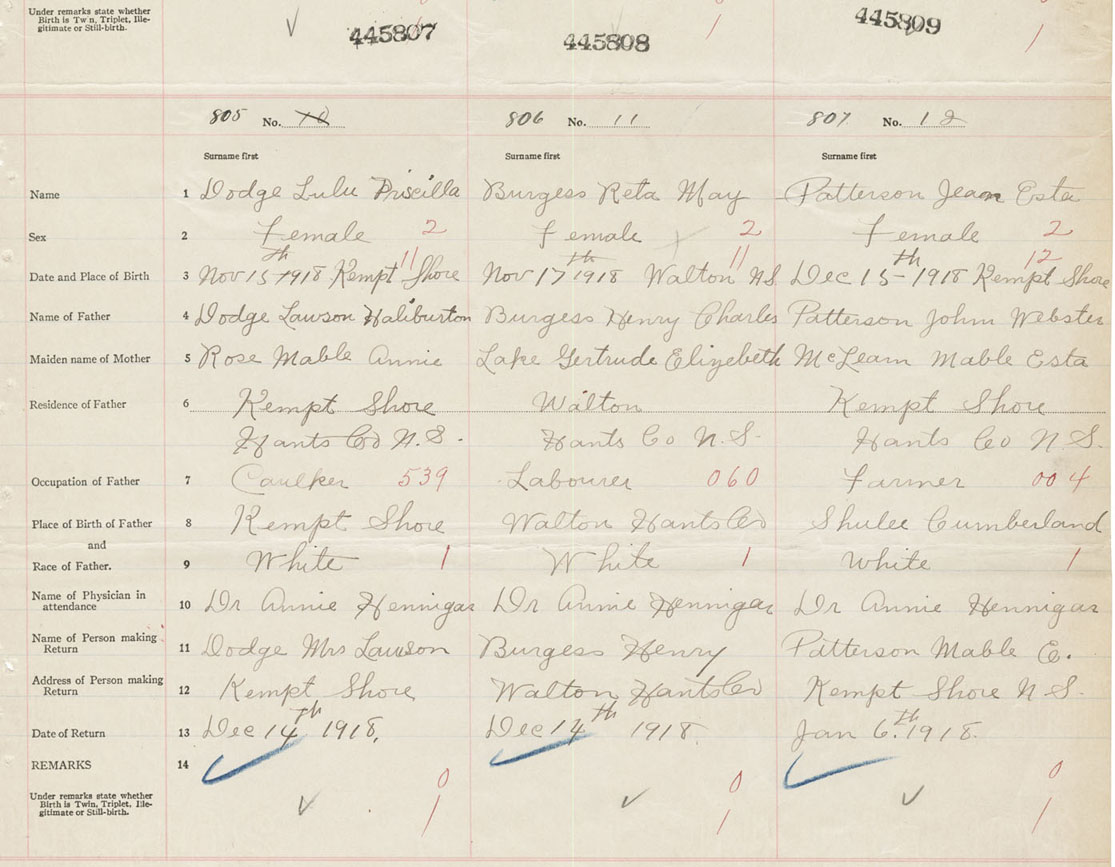 Under remarks state whether
Birth is Twin, Triplet, Ille-
gitimate or Still-birth.
445807 445808 1 445809 1
805 No. 10 806 No. 11 807 No. 12
Surname first Surname first Surname first
Name 1 Dodge Lulu Priscilla Burgess Reta May Patterson Jean Esta
Sex 2 Female 2 Female 2 Female 2
Date and Place of Birth 3 Nov 15th 1918 Kempt Shore 11 Nov 17th 1918 Walton N.S. 11 Dec 15th 1918 Kempt Shore 12
Name of Father 4 Dodge Lawson Haliburton Burgess Henry Charles Patterson John Webster
Maiden name of Mother 5 Rose Mable Annie Lake Gertrude Elizebeth McLeam Mable Esta
Residence of Father 6 Kempt Shore Walton Kempt Shore
Hants Co N.S. Hants Co N.S. Hants Co N.S.
Occupation of Father 7 Caulker 539 Labourer 060 Farmer 004
Place of Birth of Father 8 Kempt Shore Walton Hants Co Shulee Cumberland
and
Race of Father. 9 White 1 White 1 White 1
Name of Physician in
attendance 10 Dr Annie Hennigar Dr Annie Hennigar Dr Annie Hennigar
Name of Person making
Return 11 Dodge Mrs Lawson Burgess Henry Patterson Mable E.
Address of Person making
Return 12 Kempt Shore Walton Hants Co Kempt Shore N.S.
Date of Return 13 Dec 14th 1918. Dec 14th 1918. Jan 6th. 1918.
REMARKS 14
0 0 0
Under remarks state whether
Birth is Twin, Triplet, Ille-
gitimate or Still-birth.
1 1 1